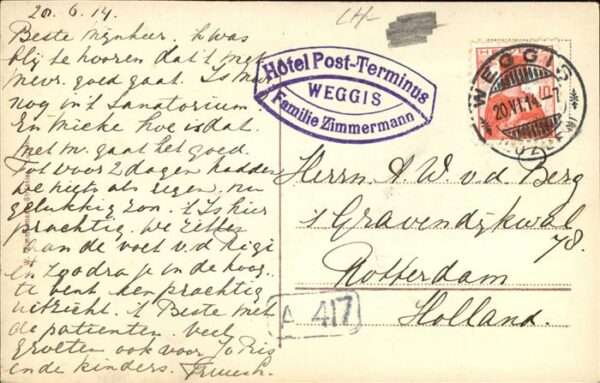 20.6.14.
Beste Mijnheer. 't was
blij te hooren dat 't met
mevr. goed gaat. Is M.
nog in 't Sanatorium.
En Mieke hoe is dat.
Met m. gaat het goed.
Tot voor 2 dagen hadden
we niets als regen. nu
gelukkig zon. 't Is hier
prachtig. We zitten
aan de voet v.d. Rigi
en zoodra je in de hoog-
te bent een prachtig
uitzicht. 't Beste met
de patienten. veel
groeten ook voor Jo
en de kinders.
1H-
Hôtel Post-Terminus
WEGGIS
Familie Zimmermann
WEGGIS
20.VI.14
Herrn. A. W. v. d. Berg
's Gravendijkwal
78.
Rotterdam
Holland.
A 417